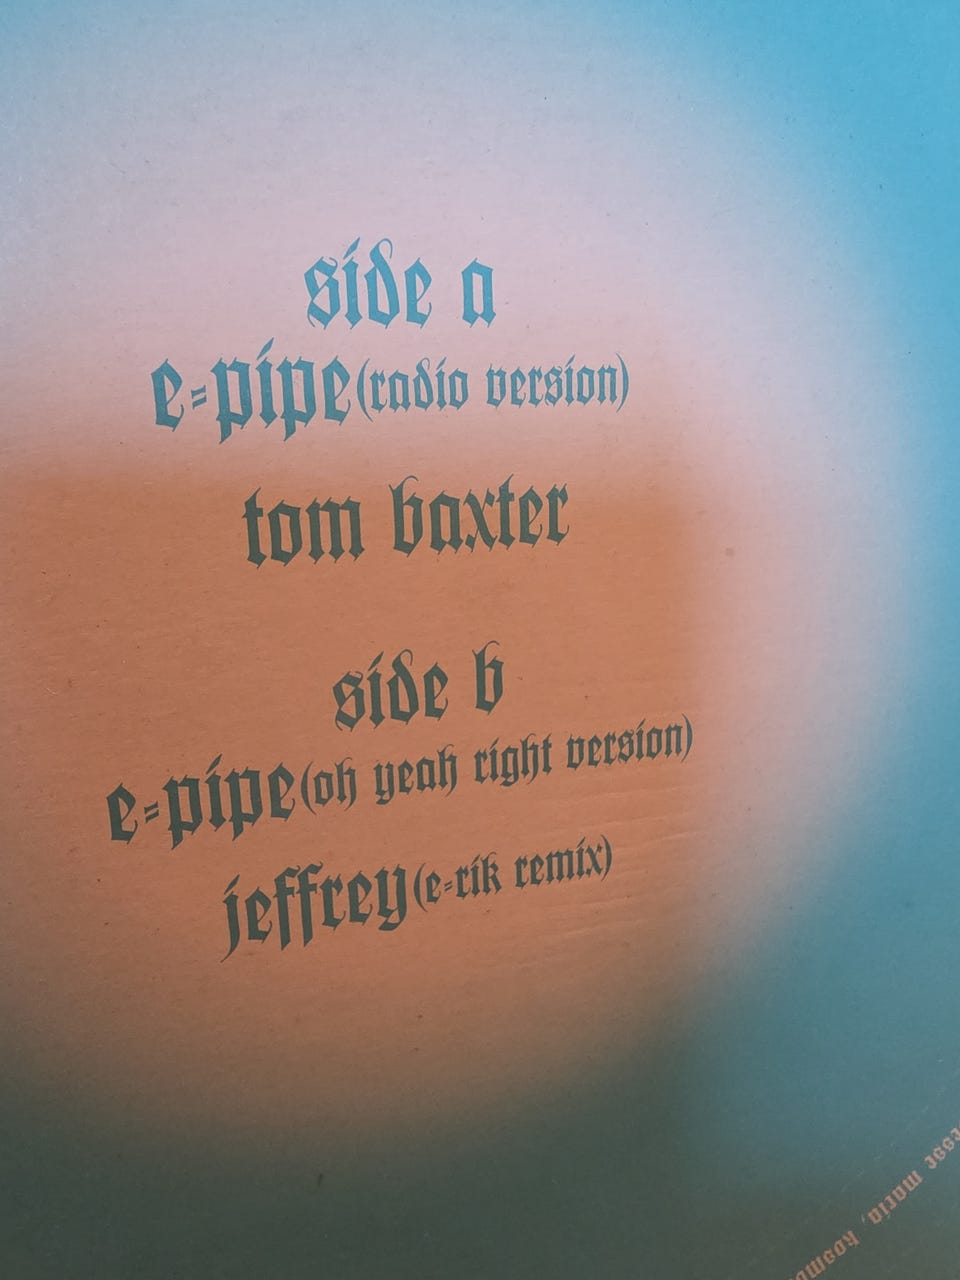 side a
e=pipe (radio version)
tom baxter
side b
e=pipe (oh yeah right version)
jeffrey (e=rik remix)
maria,